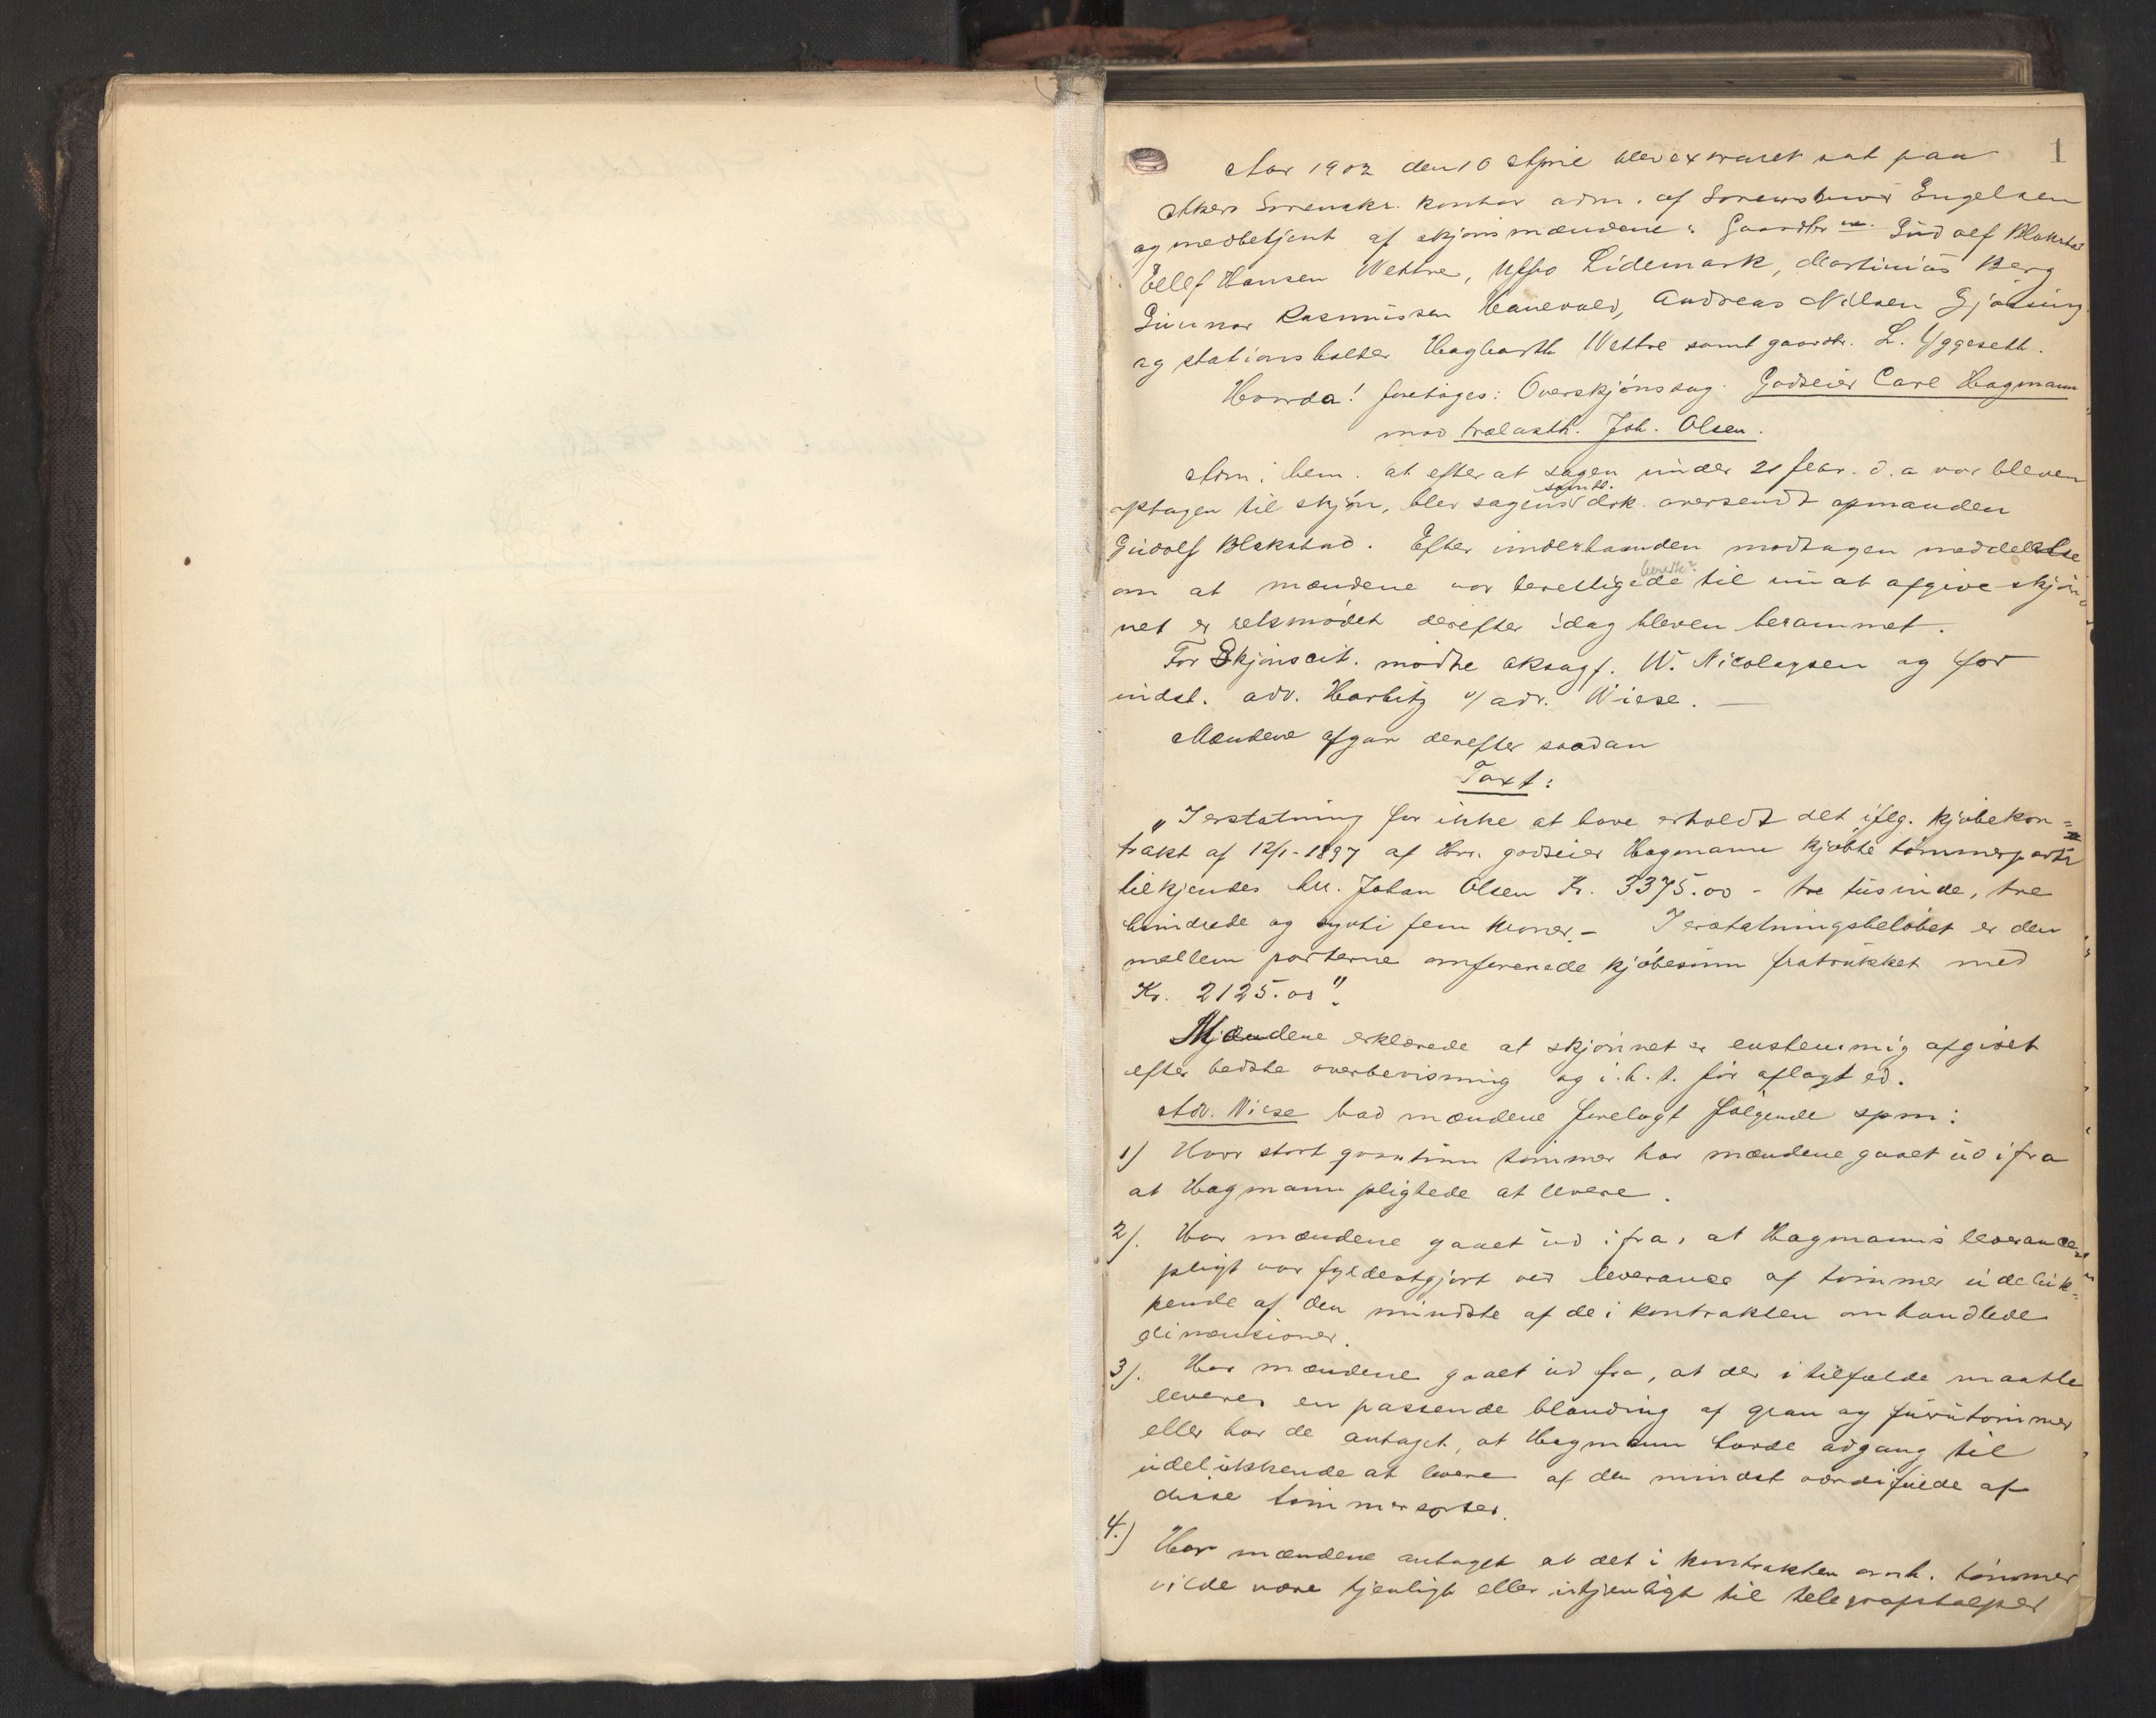 1
Aar 1902 den 10 April blev extraret sat paa
Akers Sorenskr. kontor adm. af Engelsen
og medbetjent af skjønsmændene: Gaardbr. Gudolf Blakstad
Ellef Hansen Wettre, Uffo Lidemark, Martinius Berg
Gunnar Rasmussen Hanevold, Andreas Nilsen Gjøssing
og stationsholder Hagbarth Wettre samt gaardbr. L. Yggeseth.
Hvorda! foretages: Overskjønssag. Godseier Carl Hagmann
mod trælasth. Joh. Olsen.
Adm. bem. at efter at sagen under 21 febr. d. a var bleven
optagen til skjøn, blev sagens samtl. dok. oversendt opmanden
Gudolf Blakstad. Efter underhaanden modtagen meddelelse
om at mændene var berettigede til nu at afgive skjøn-
net er retsmødet derefter idag bleven berammet.
For Skjønscit. mødte oksagf. W. Nicolaysen og for
indst. adv. Harbitz v/ adv. Wiese. —
Mændene afgav derefter saadan
Taxt:
„I erstatning for ikke at have erholdt det iflg. kjøbekon=
trakt af 12/1-1897 af Hr. godseier Hagmann kjøbte tømmerparti
tilkjendes hr. Johan Olsen Kr. 3375.00 - tre tusinde, tre
hundrede og sytti fem kroner.- I erstatningsbeløbet er den
mellem parterne omforenede kjøbesum fratrukket med
Kr. 2125.00".
Mændene erklærede at skjønnet er enstemmig afgivet
efter bedste overbevisning og i. h. t. før aflagt ed.
Adv. Wiese bad mændene forelagt følgende spm:
1) Hvor stort qvantum tømmer har mændene gaaet ud ifra
at Hagmann pligtede at levere.
2). Har mændene gaaet ud ifra, at Hagmanns leverance-
pligt var fyldestgjort ved leverance af tømmer udeluk-
kende af den mindste af de i kontrakten omhandlede
dimensioner.
3). Har mændene gaaet ud fra, at der i tilfælde maatte
leveres en passende blanding af gran og furutømmer
eller har de antaget, at Hagmann havde adgang til
udelukkende at levere af den mindst værdifulde af
disse tømmersorter.
4.) Har mændene antaget at det i kontrakten omh. tømmer
vilde være tjenligt eller utjenligt til telegrafstolper